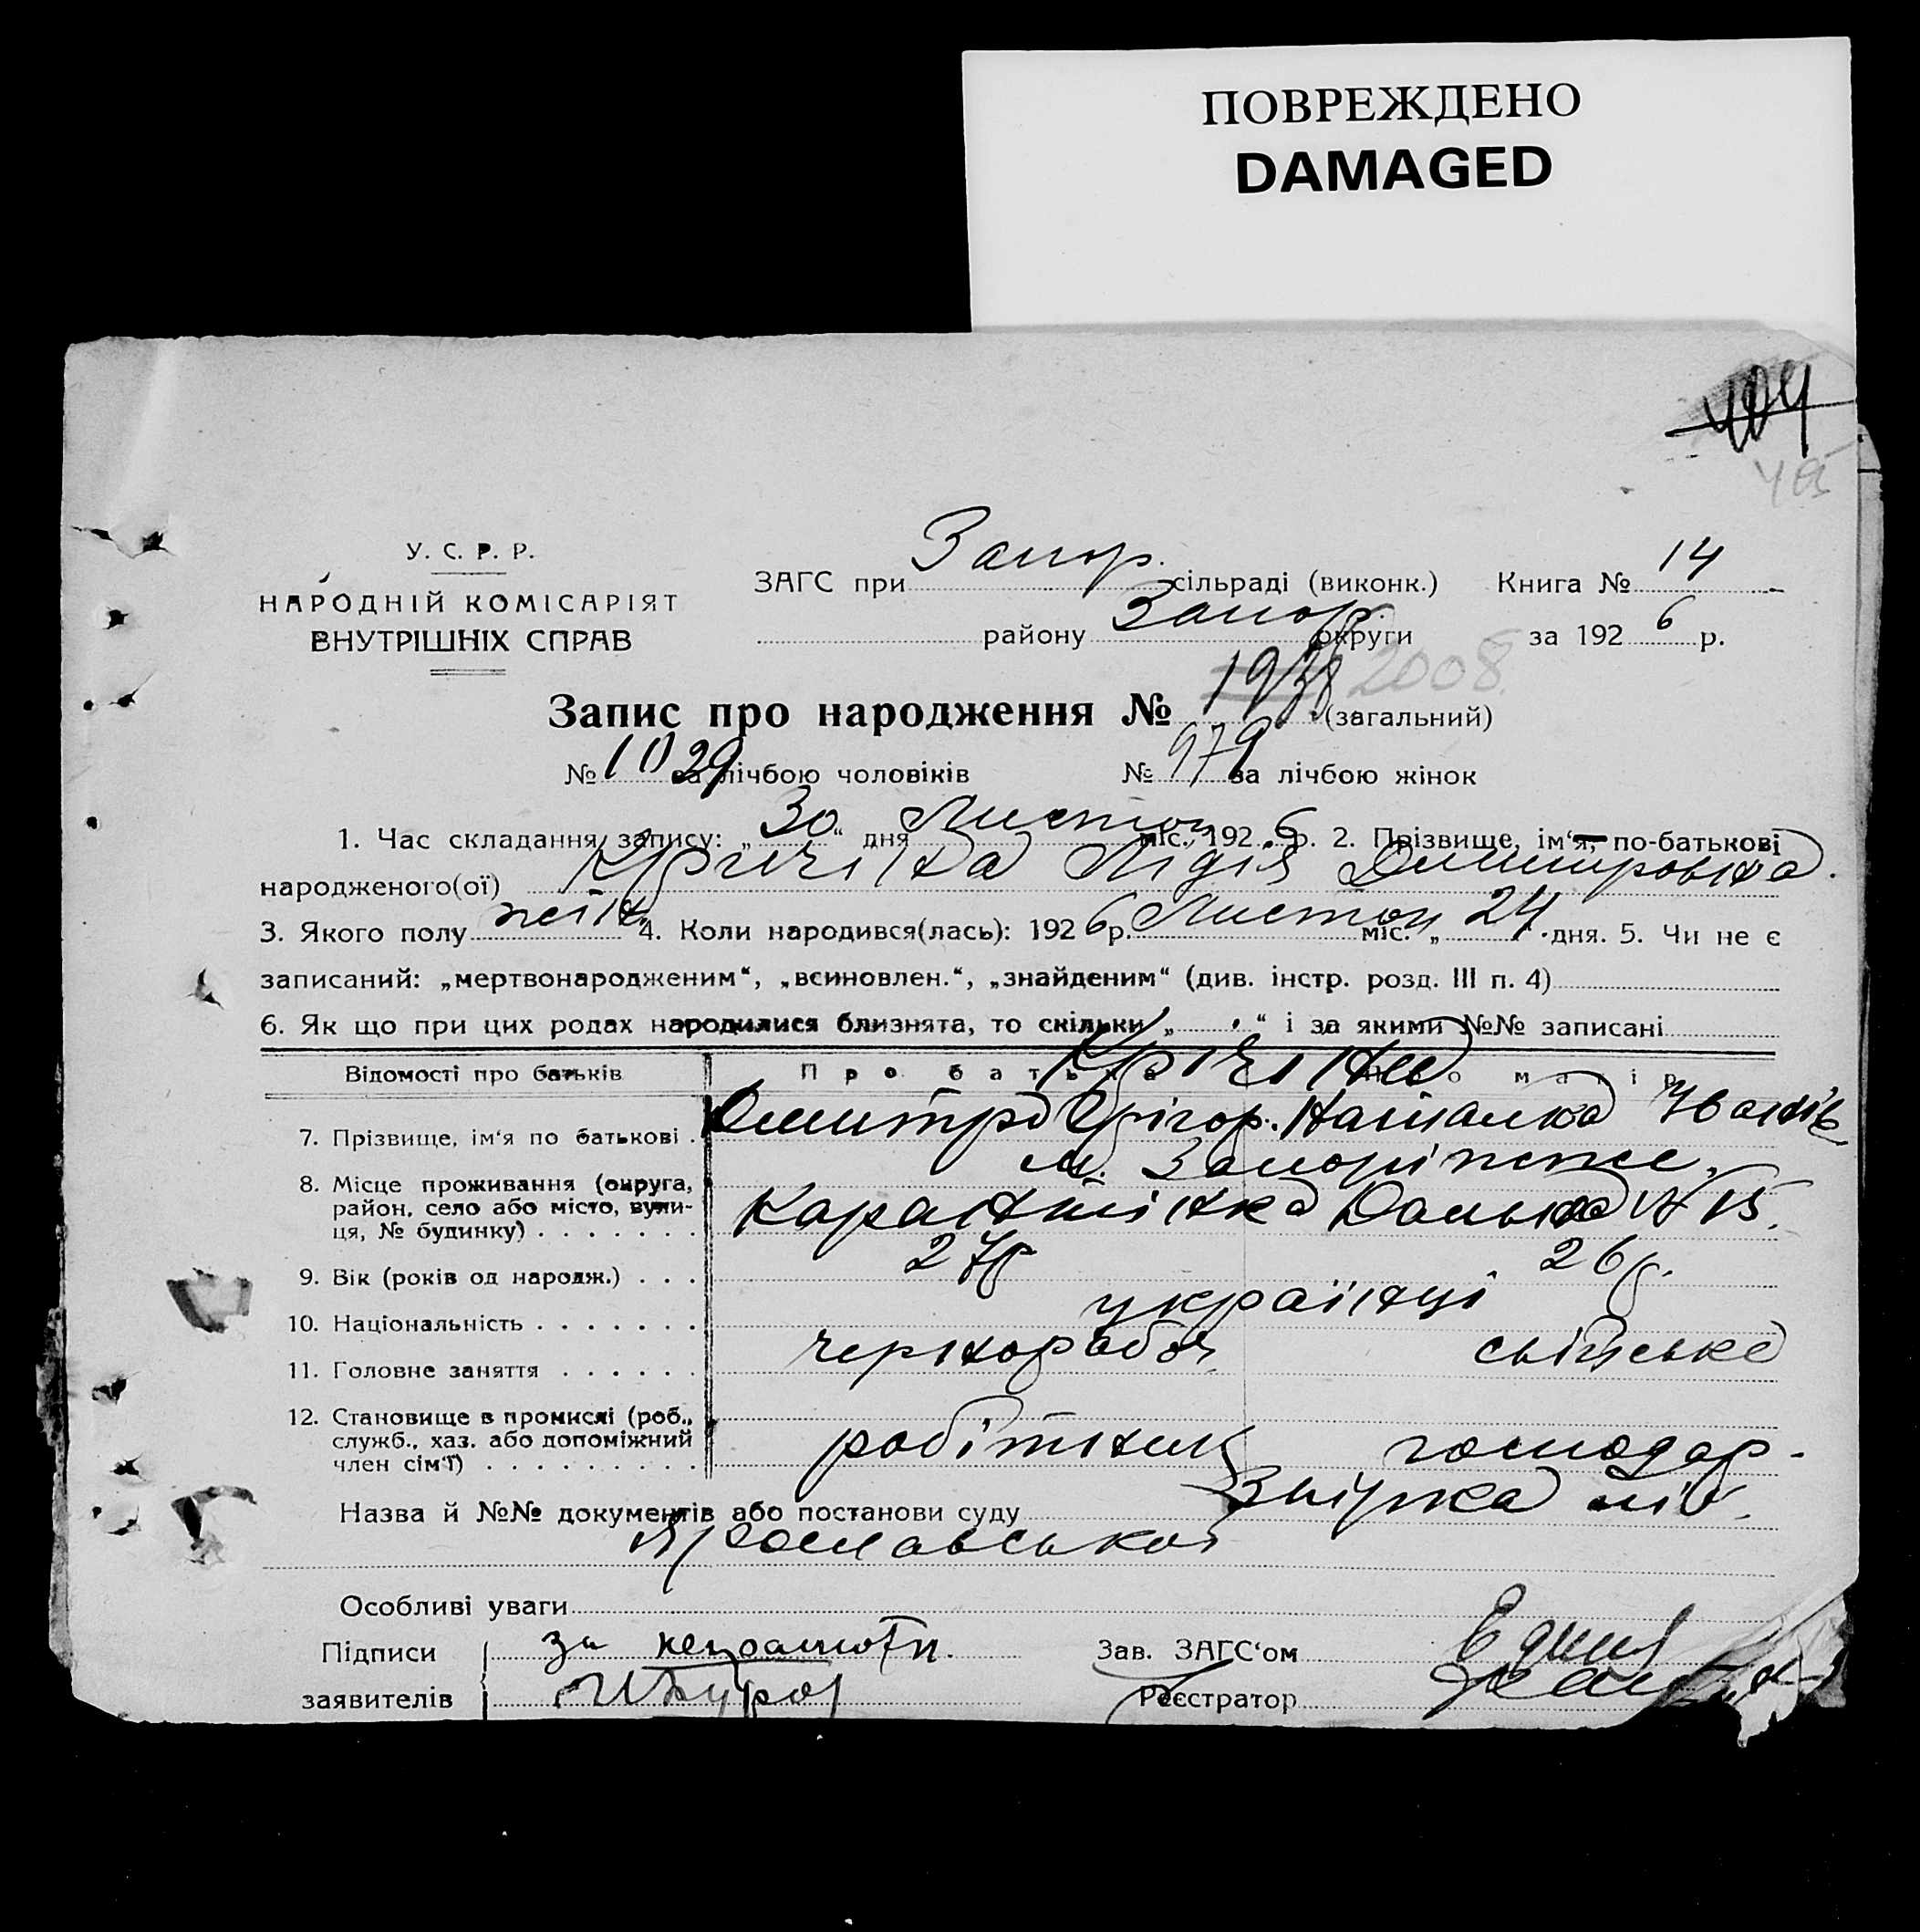 ПОВРЕЖДЕНО
DAMAGED
404
У. С. Р. Р.
НАРОДНІЙ КОМІСАРІЯТ
ВНУТРІШНІХ СПРАВ
ЗАГС при Запор. сільраді (виконк.) Книга № 14
району Запор. округи за 1926 р.
Запис про народження № 1938 2008 (загальний)
№ 1029 за лічбою чоловіків № 979 за лічбою жінок
1. Час складання запису: „30“ дня Листоп міс. 1926 р. 2. Прізвище, ім‘я, по-батькові
народженого(ої) Лідія Дмитровна.
3. Якого полу жін 4. Коли народився(лась): 1926 р. Листоп міс. „24“ дня. 5. Чи не є
записаний: „мертвонародженим“, „всиновлен.“, „знайденим“ (див. інстр. розд. III п. 4)
6. Як що при цих родах народилися близнята, то скільки „ “ і за якими №№ записані
Відомості про батьків Про батька Про матір
7. Прізвище, ім‘я по батькові . Дмитро Грігор. Наталка Іванів
8. Місце проживання (округа, м. Запоріжже,
район, село або місто, вули- Карантінка Дальня № 15.
ця, № будинку) . . . . . . .
9. Вік (років од народж.) . . . 27р 26р.
10. Національність . . . . . . . українці
11. Головне заняття . . . . . . чорнороб
12. Становище в промислі (роб.,
служб., хаз. або допоміжний робітник господар.
член сім‘ї) . . . . . . . . .
Назва й №№ документів або постанови суду
Ярославськой
Особливі уваги
Підписи за неграмотн. Зав. ЗАГС‘ом
заявителів Реєстратор